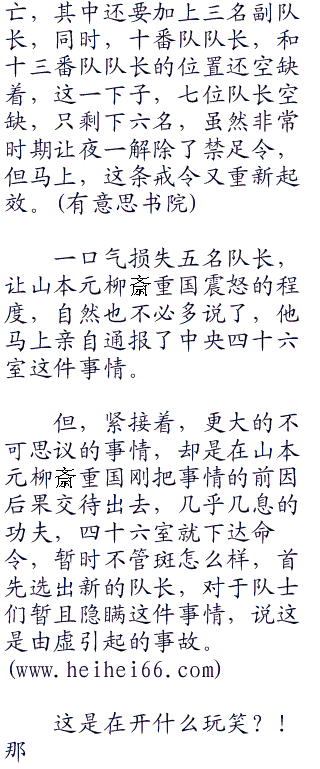 亡，其中还要加上三名副队
长，同时，十番队队长，和
十三番队队长的位置还空缺
着，这一下子，七位队长空
缺，只剩下六名，虽然非常
时期让夜一解除了禁足令，
但马上，这条戒令又重新起
效。(有意思书院)
一口气损失五名队长，
让山本元柳斎重国震怒的程
度，自然也不必多说了，他
马上亲自通报了中央四十六
室这件事情。
但，紧接着，更大的不
可思议的事情，却是在山本
元柳斎重国刚把事情的前因
后果交待出去，几乎几息的
功夫，四十六室就下达命
令，暂时不管斑怎么样，首
先选出新的队长，对于队士
们暂且隐瞒这件事情，说这
是由虚引起的事故。
(www.heihei66.com)
这是在开什么玩笑？！
那